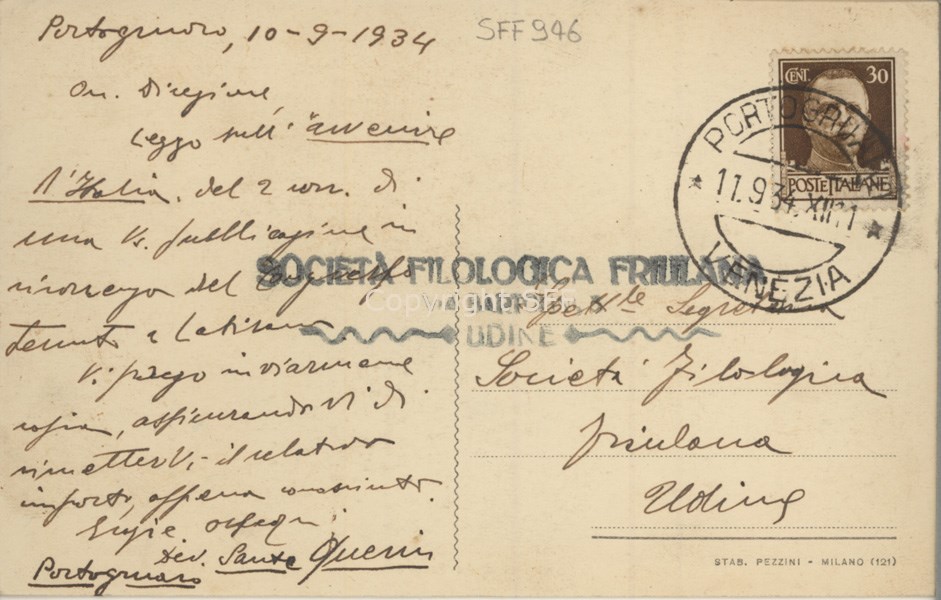 Portogruaro, 10-9-1934
On. Direzione,
Leggo sull' "Avvenire
d'Italia, del 2 corr. di
una Vs. pubblicazione in
ricorrenza del Congresso
tenuto a Latisana
Vi prego inviarmene
copia, assicurandoVi di
rimetterVi il relativo
importo, appena conosciuto.
Grazie Ossequi
Dev. Sante Querin
Portogruaro
SFF 946
CENT. 30
POSTE ITALIANE
PORTOGRUARO
11.9.34.XII
VENEZIA
SOCIETÀ FILOLOGICA FRIULANA
UDINE
Copyright SFF
Spett.le Segreteria
Società Filologica
Friulana
Udine
STAB. PEZZINI - MILANO (121)